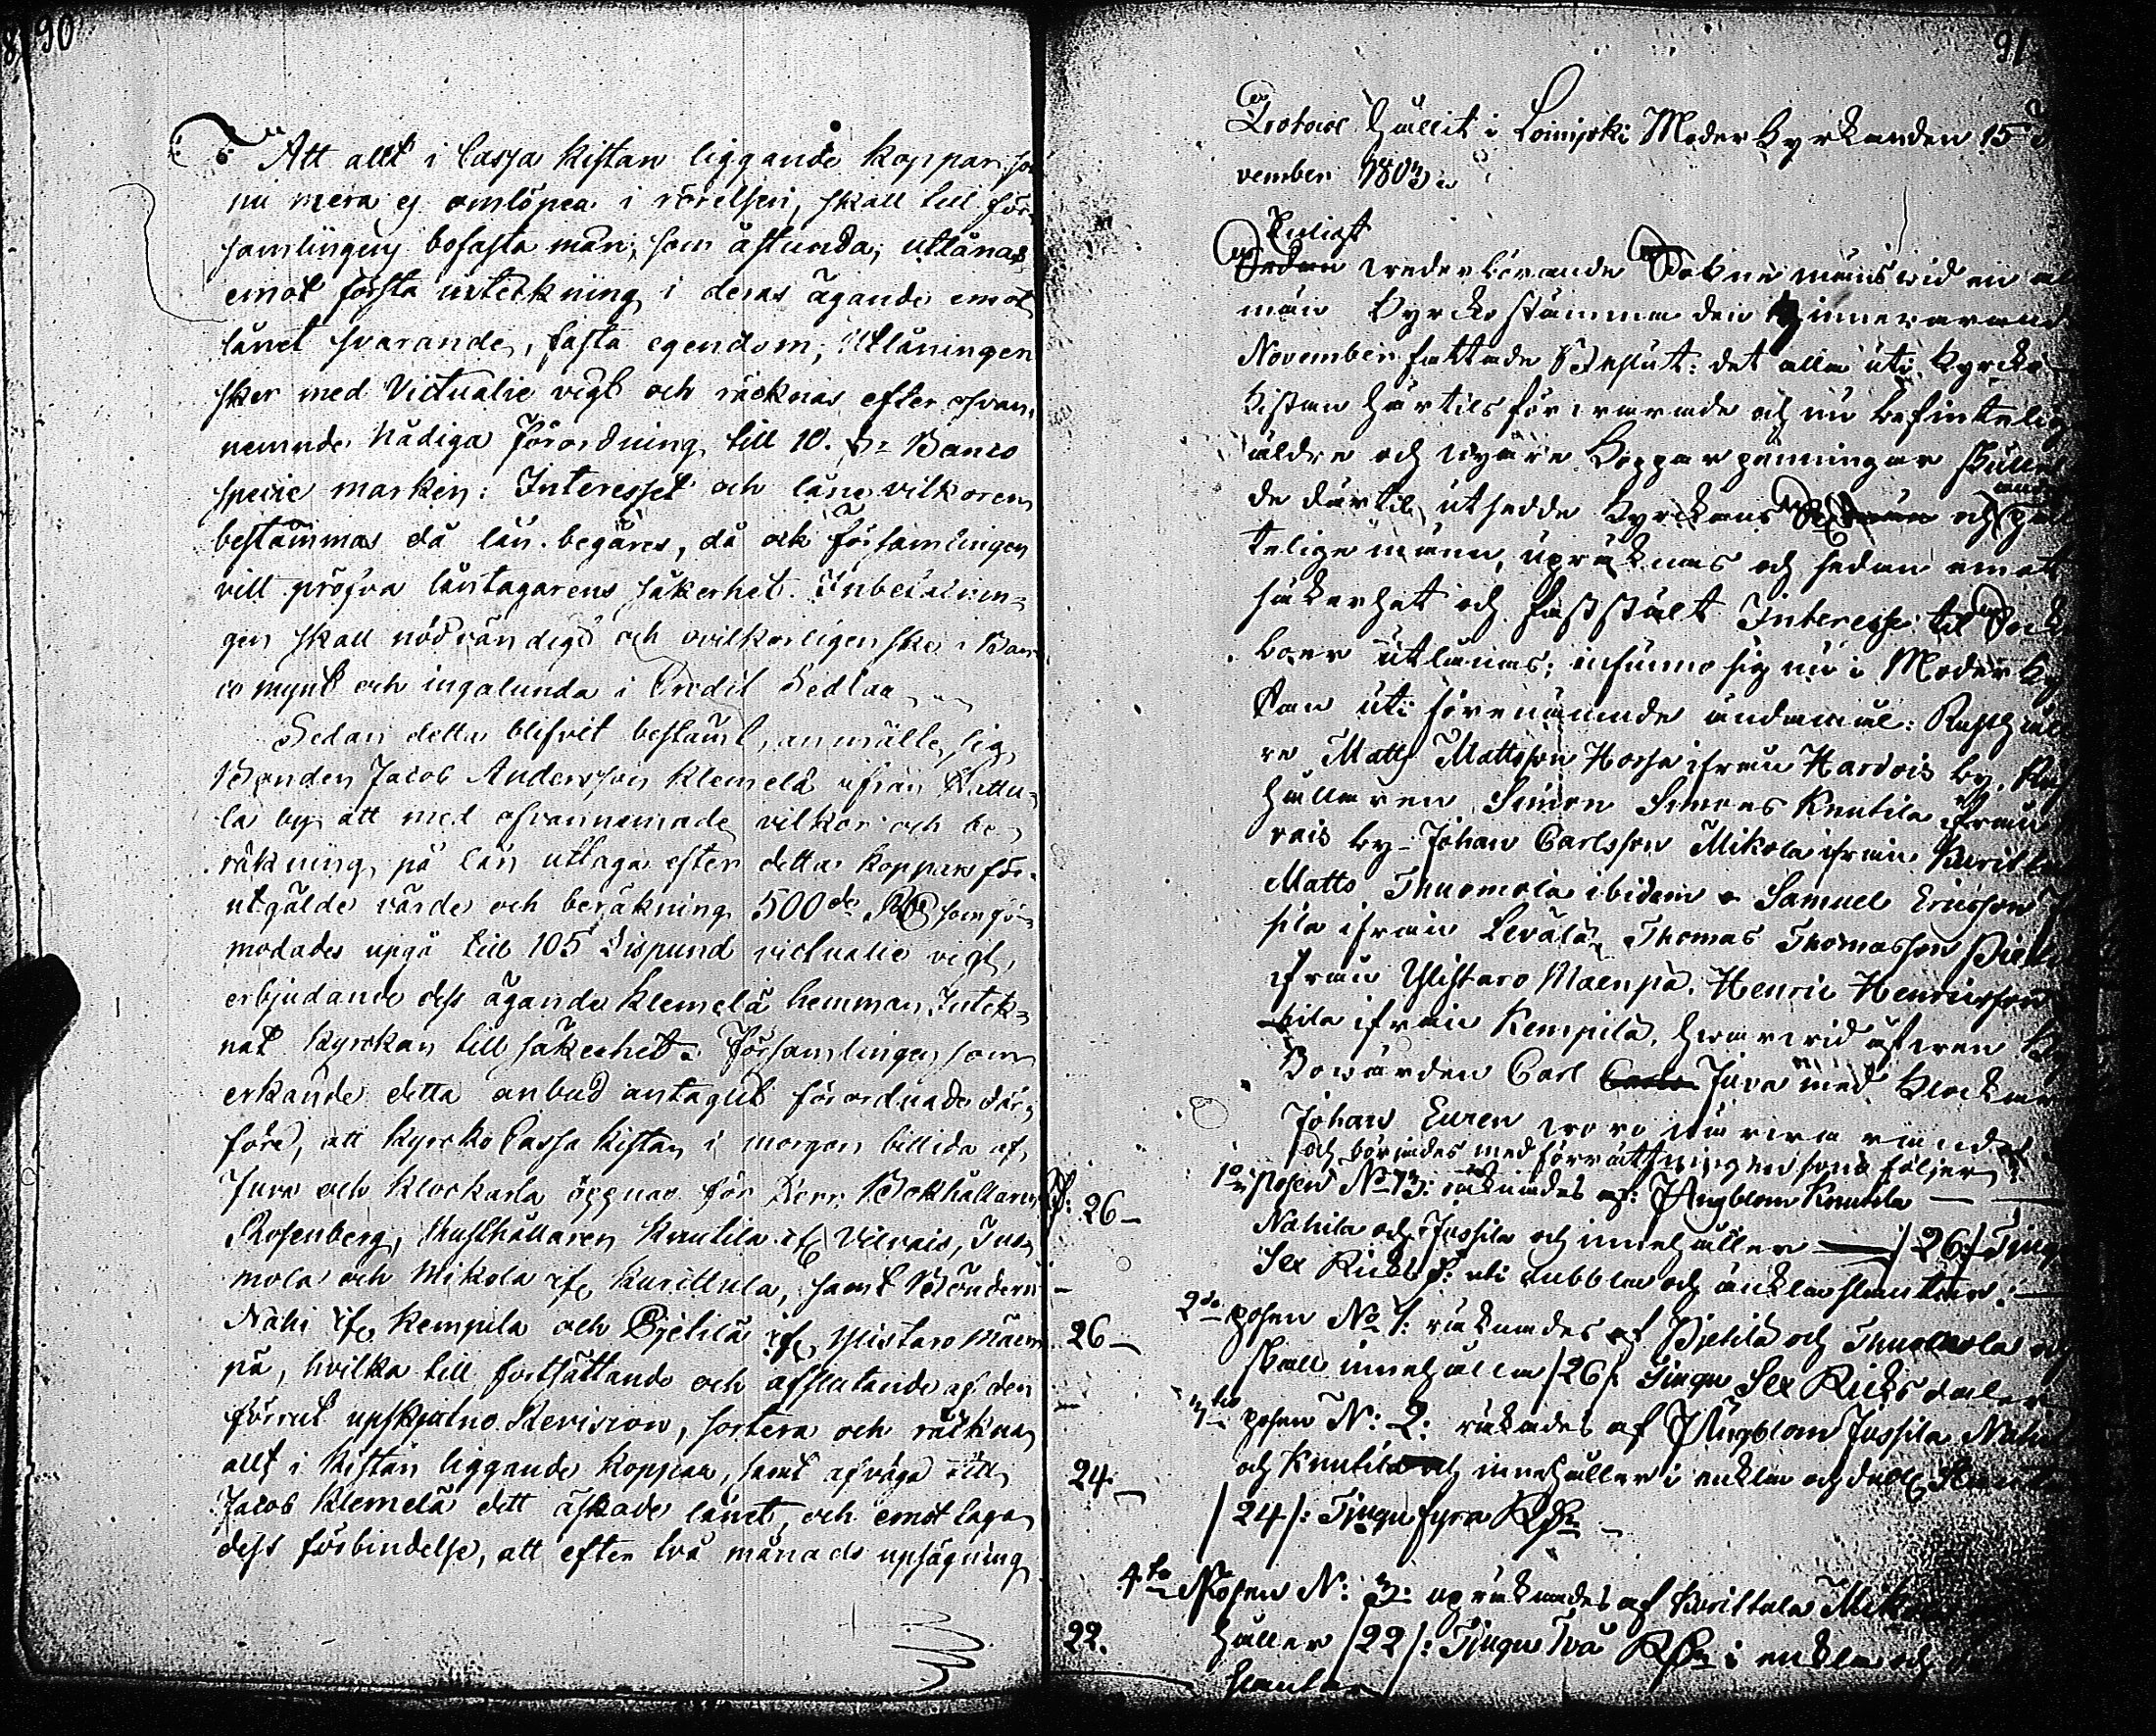 90
Att allt i Cassa Kistan liggande koppar, so
nu mera ej omlöpea i rörelsen, skall till för-
samlingens bofasta män, som åstunda, utlånas
emot första inteckning i deras ägande emot
lånet svarande, fasta egendom; Utlåningen
sker med Victualie vigt och räcknas efter ofvan-
nemnde Nådiga Förordning till 10. Banco
specie marken: Interesset och låne vilkoren
bestämmas då lån begäres, då ock församlingen
vill pröfva låntagarens säkerhet. Inbetalnin-
gen skall nödvändigt och ovilkorligen ske i Ban-
co mynt och ingalunda i Credit Sedlar
Sedan detta blifvit bestämt, anmälte sig
Bonden Jacob Andersson Klemelä ifrån
la by att med ofvannemnade vilkor och be-
räkning på lån uttaga efter detta koppar för-
utgälde värde och beräkning 500 de som för-
modades upgå till 105 Lispund victualie vigt,
erbjudande dess ägande Klemelä hemman Intek-
nat kyrckan till säkerhet. Församlingen som
erkände detta anbud antaglit förordnade där-
före, att kyrcko Cassa Kistan i morgon bittida af
Juva och Klockarla öppnas för Herr Bokhållaren
Rosenberg, Rusthållaren Knutila if Vilvais, Tuo-
mola och Mikola if Kurittula, samt Bönderne
Nahi if Kempilä och Pjetilä if Ylistaro Mäen-
pä, hvilka till fortsättande och afslutande af den
förrut upskjutne Revision, sortera och räkna
allt i Kistan liggande koppar, samt afväga till
Jacob Klemelä dett äskade lånet, och emot taga
dess förbindelse, att efter två månads upsägning
91
Protocol hållit i Loimjoki Moderkyrkanden 15
vember 1803
Enligt
Sedan wederbörande Sokne mäns wid en al
män Kyrcko stämma den innevarande
November fattade Beslut: det alla uti Kyrcko
Kistan härtils förvarade och nu befintelig
äldre och nyare Kopparpenningar skulle
de därtil utsedde Kyrckans och
telige männ, upräknas och sedan emot
säkerhet och fastställt Interesse til Sock
boer utlånas; infunno sig nu i Moder ky
kan uti förenämnde ändamål: Rusthål
re Matts Mattsson Hossa ifrån Hardois by, Rus
hållaren Simon Simons Knutila ifrån
vais by Johan Carlsson Mikola ifrån Kuritt
Matts Thuomola ibidem Samuel Ericsson
sila ifrån Levälä Thomas Thomasson Pietil
ifrån Ylistaro Maenpä. Henric Henricsson
ifrån Kempilä, hwarwid äfwen Ky
wärden Carl Juva med Klockar
Johan Euren woro närvarande
och börjades med förrättningen som följer
1o posen No 13: räknades af: J Ångblom Knutila
26
Nahila och Jussila och innehåller /26/ Tjugu
Sex Ricks uti dubbla och änkla slantar.
2do posen No 1: räknades af Pjetilä och Thuomola
26
skall innehålla /26/. Tjugu Sex Ricksdaler
3tio posen N: 2: räknades af J Ångblom Jussila Nahi
och Knutila innehåller i enkla och dubb Slant
24
/24/: Tjugu fyra
4to Posen N: 3: upräknades af Kurittula Mikola
22.
håller /22/: Tjugu Två i enkla och
slantar